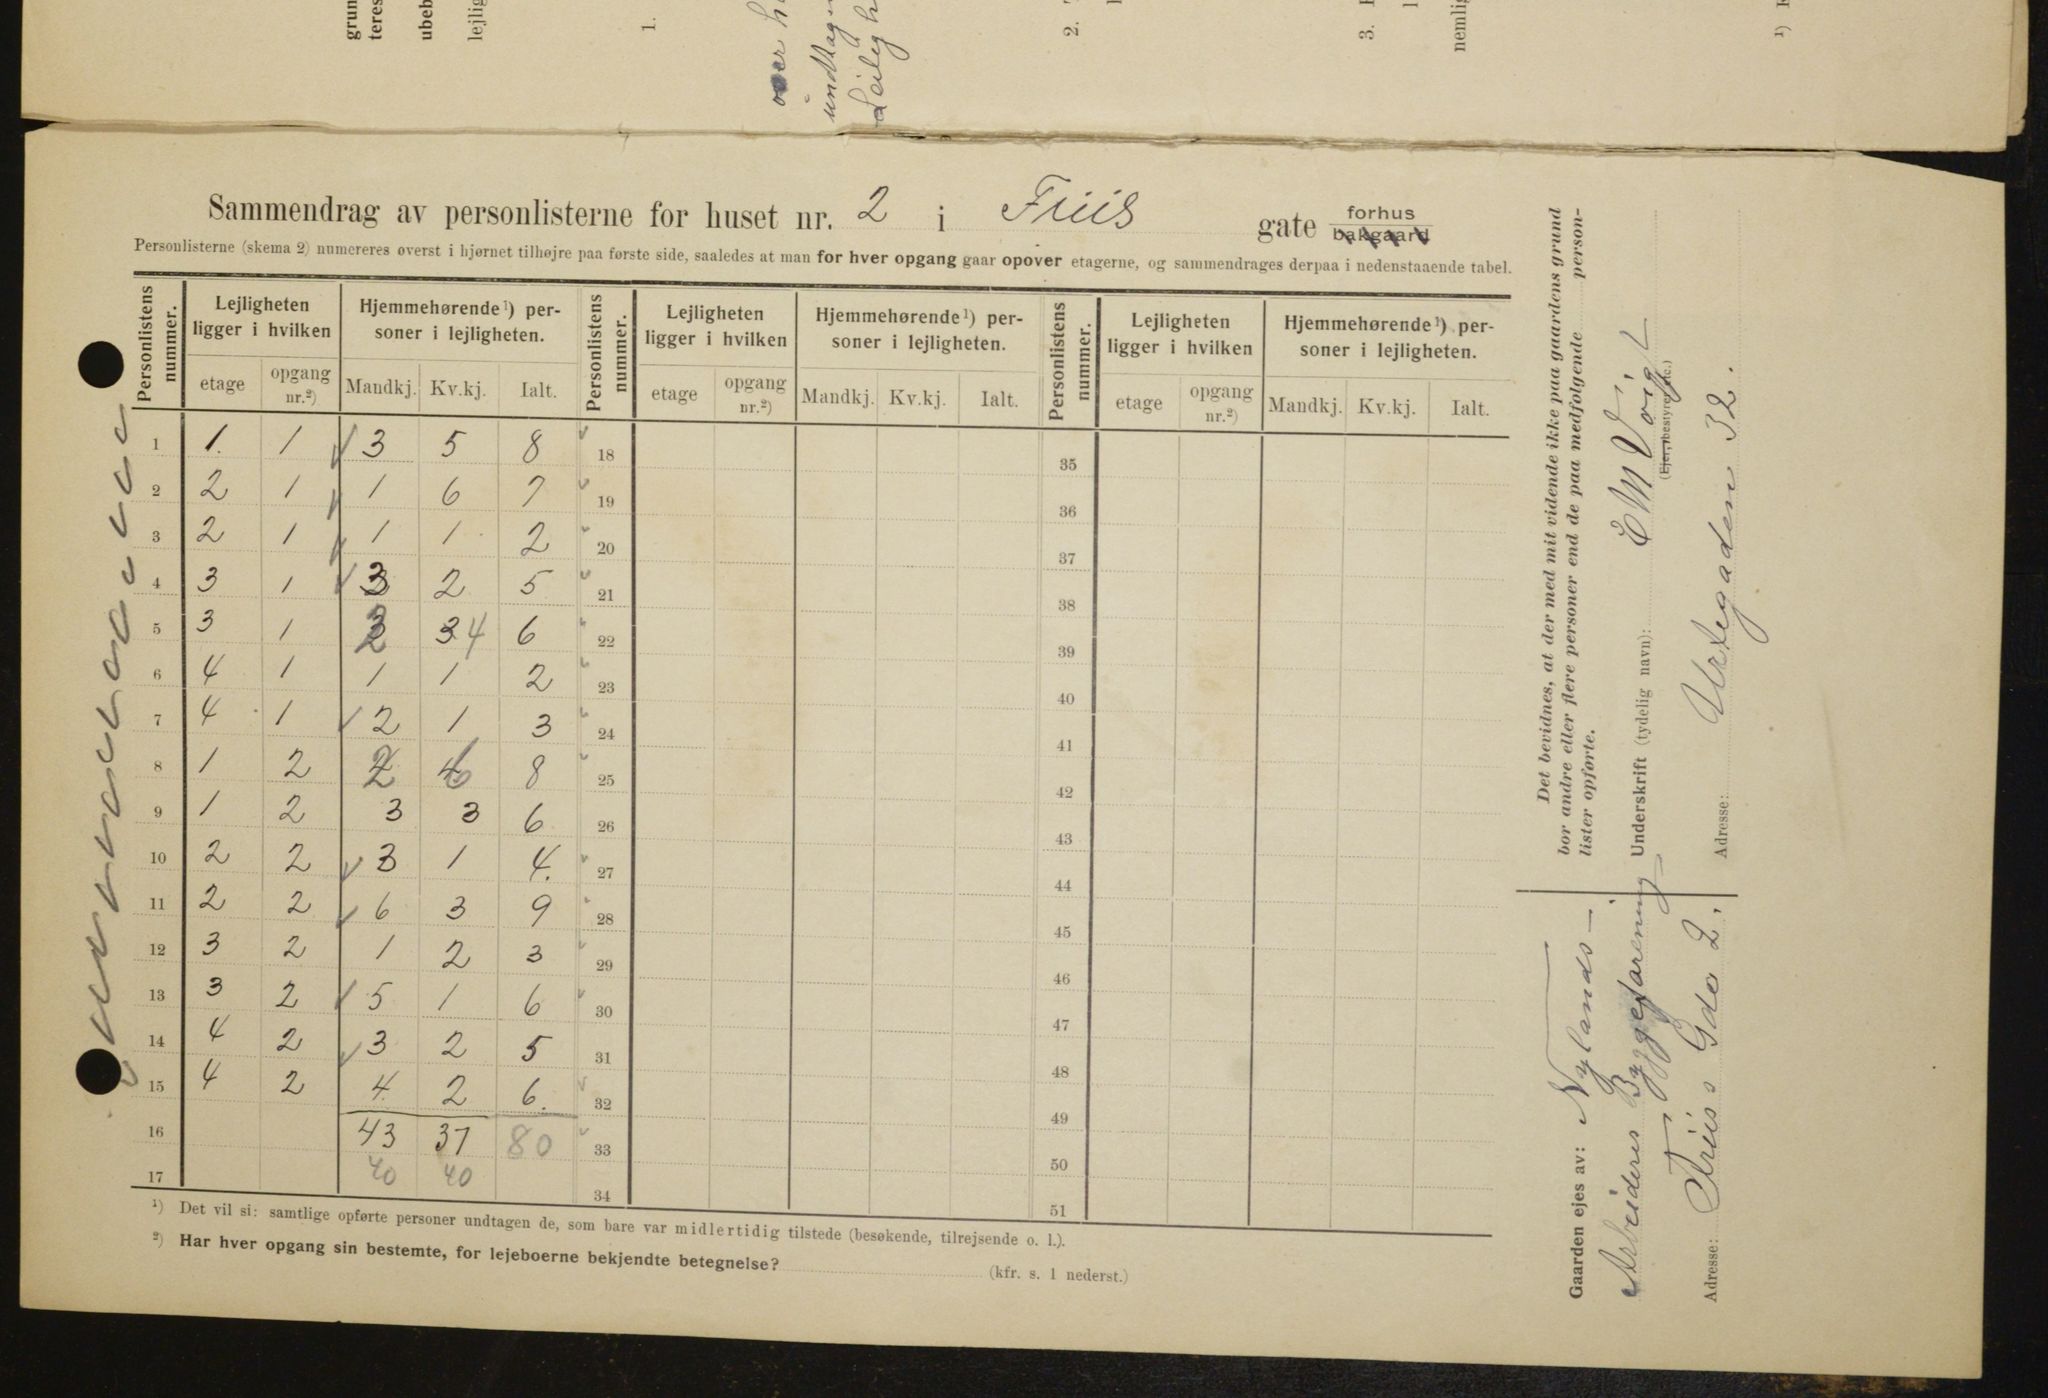 grun
teres
ubeb
lejlig
1.
over h
undtag
Leilig h
2.
3.
nemlig
1)
Sammendrag av personlisterne for huset nr. 2 i Friis gate forhus
bakgaard
Personlisterne (skema 2) numereres øverst i hjørnet tilhøjre paa første side, saaledes at man for hver opgang gaar opover etagerne, og sammendrages derpaa i nedenstaaende tabel.
Personlistens nummer. Lejligheten ligger i hvilken Hjemmehørende ¹) personer i lejligheten. Personlistens nummer. Lejligheten ligger i hvilken Hjemmehørende ¹) personer i lejligheten. Personlistens nummer. Lejligheten ligger i hvilken Hjemmehørende ¹) personer i lejligheten.
etage opgang nr.²) Mandkj. Kv.kj. Ialt. etage opgang nr.²) Mandkj. Kv.kj. Ialt. etage opgang nr.²) Mandkj. Kv.kj. Ialt.
1 1. 1 3 5 8 18 35
2 2 1 1 6 7 19 36
3 2 1 1 1 2 20 37
4 3 1 3 2 5 21 38
5 3 1 2 3 4 6 22 39
6 4 1 1 1 2 23 40
7 4 1 2 1 3 24 41
8 1 2 2 6 8 25 42
9 1 2 3 3 6 26 43
10 2 2 3 1 4. 27 44
11 2 2 6 3 9 28 45
12 3 2 1 2 3 29 46
13 3 2 5 1 6 30 47
14 4 2 3 2 5 31 48
15 4 2 4 2 6. 32 49
16 43 37 80 33 50
17 40 40 34 51
¹) Det vil si: samtlige opførte personer undtagen de, som bare var midlertidig tilstede (besøkende, tilrejsende o. l.).
²) Har hver opgang sin bestemte, for lejeboerne bekjendte betegnelse? (kfr. s. 1 nederst.)
Det bevidnes, at der med mit vidende ikke paa gaardens grund
bor andre eller flere personer end de paa medfølgende person-
lister opførte.
Underskrift (tydelig navn): E M Voigt
(Ejer, bestyrer etc.)
Adresse: Urtegaden 32.
Gaarden ejes av: Nylands-
Arbeideres Byggeforening
Adresse: Friis Gade 2.